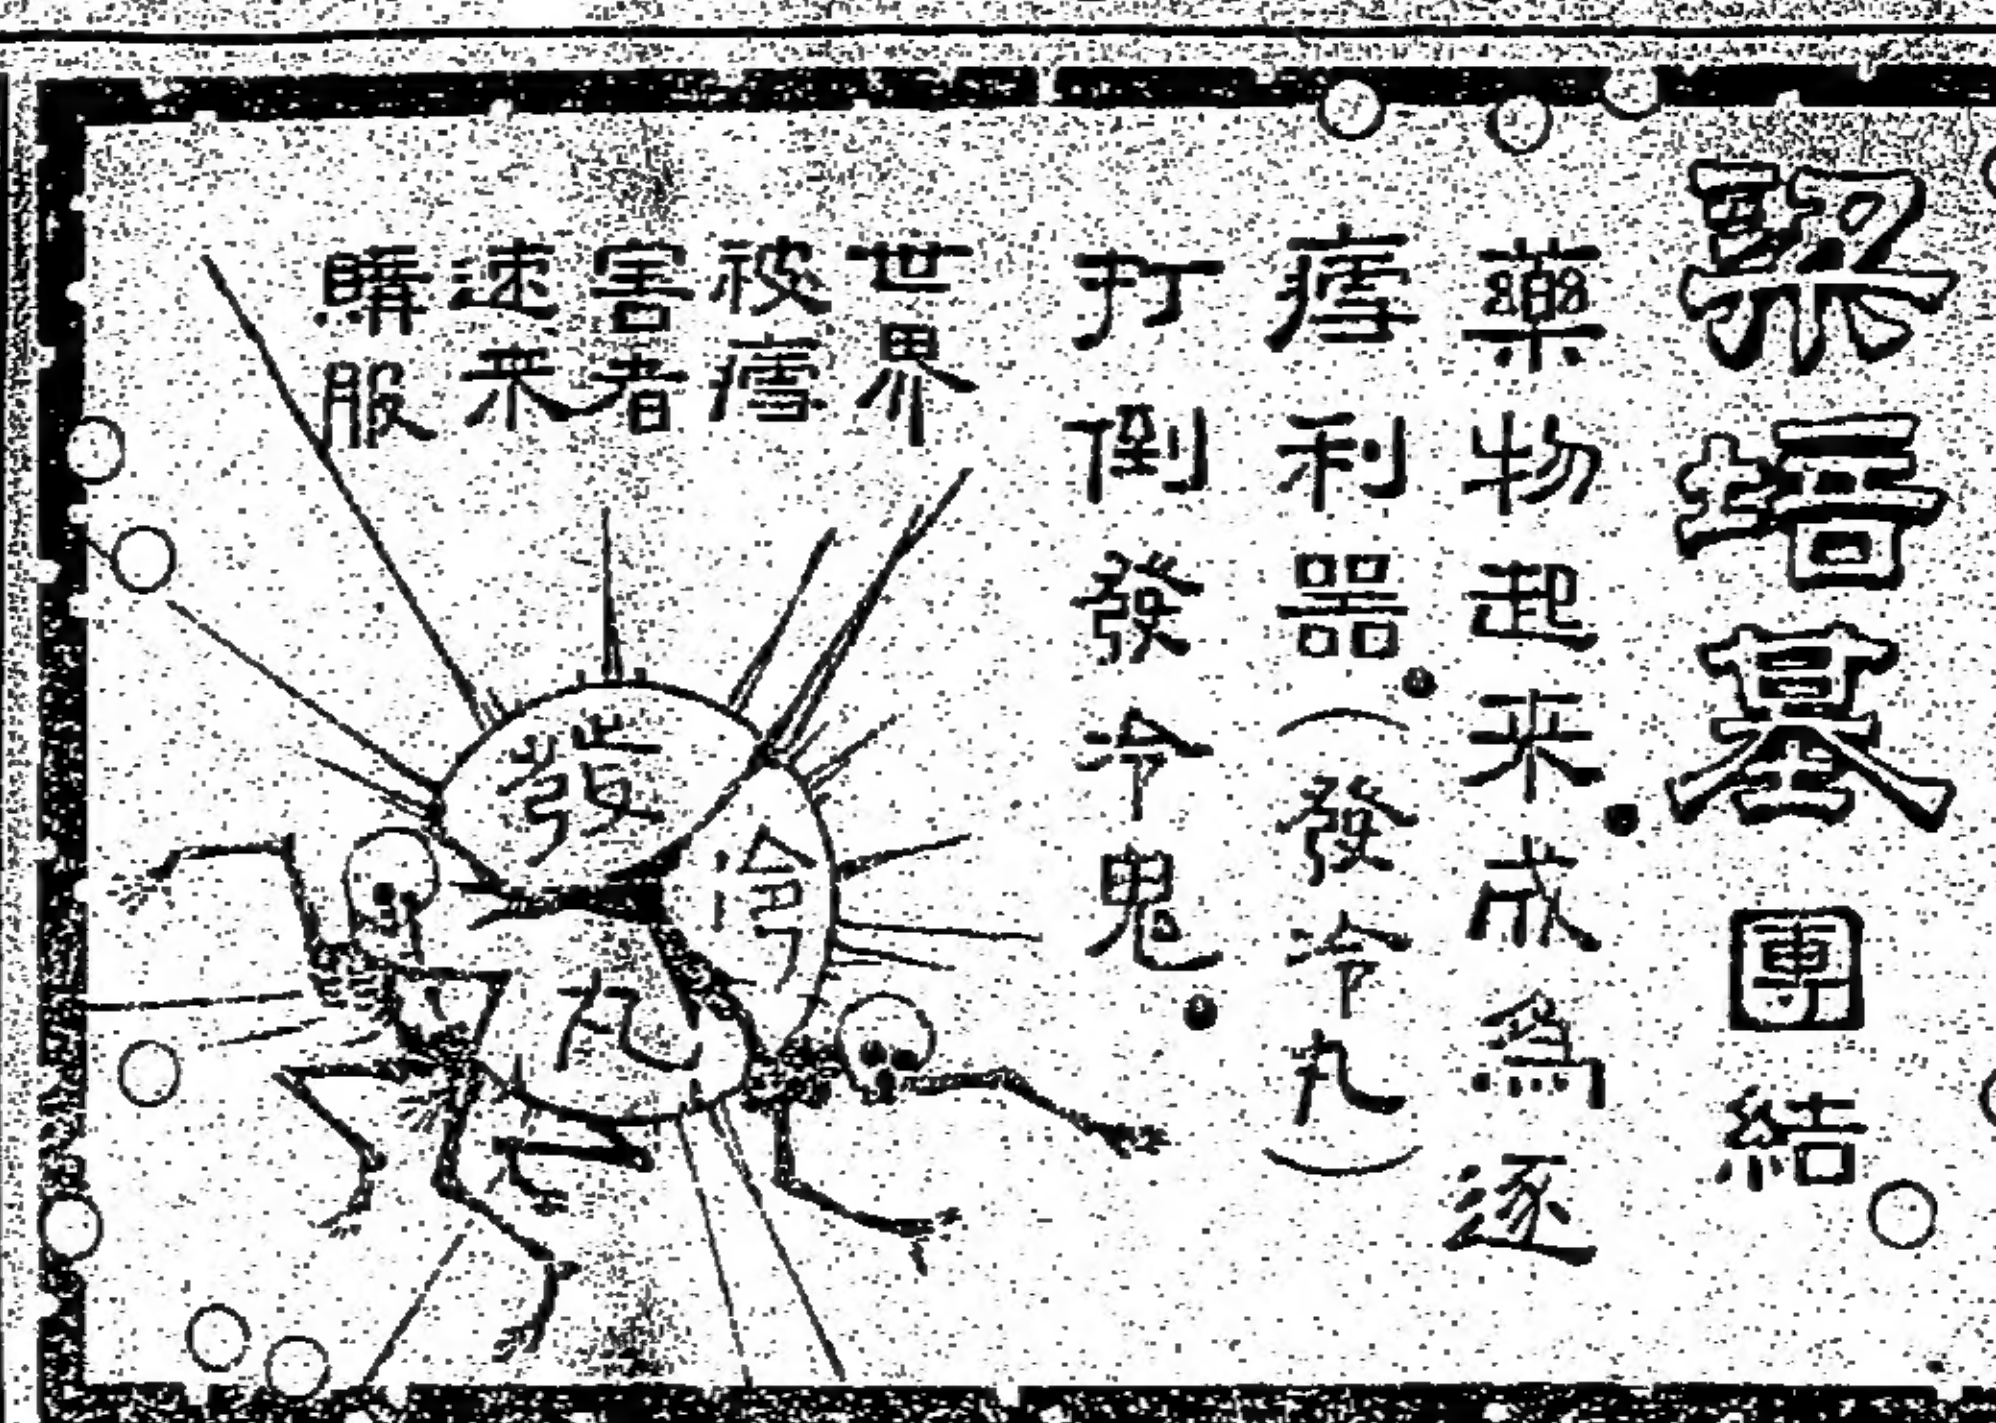 梁培基團結
藥物起来。成爲逐
瘧利器。(發冷丸)
打倒發冷鬼。
世界
被瘧
害者
速来
購服
發
冷
丸